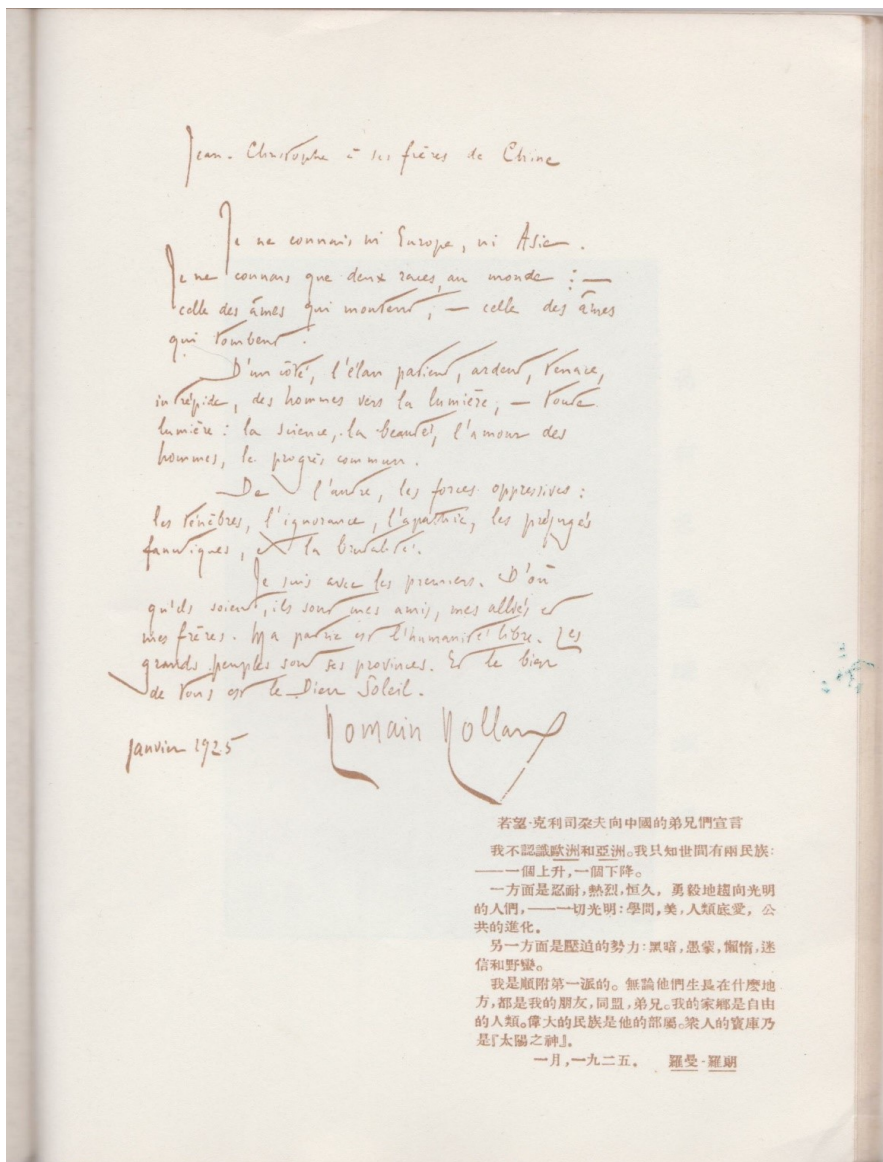 Jean-Christophe à ses frères de Chine
Je ne connais ni Europe, ni Asie.
Je ne connais que deux races au monde : —
celle des âmes qui montent, — celle des âmes
qui tombent.
D'un côté, l'élan patient, ardent, tenace,
intrépide, des hommes vers la lumière, — toute
lumière : la science, la beauté, l'amour des
hommes, le progrès commun.
De l'autre, les forces oppressives :
les ténèbres, l'ignorance, l'apathie, les préjugés
fanatiques, et la brutalité.
Je suis avec les premiers. D'où
qu'ils soient, ils sont mes amis, mes alliés et
mes frères. Ma patrie est l'humanité libre. Les
grands peuples sont ses provinces. Et le bien
de tous est le Dieu Soleil.
Romain Rolland
Janvier 1925
若望-克利司朶夫向中國的弟兄們宣言
我不認識歐洲和亞洲。我只知世間有兩民族：
——一個上升，一個下降。
一方面是忍耐，熱烈，恒久，勇毅地趨向光明
的人們，——一切光明：學問，美，人類底愛，公
共的進化。
另一方面是壓迫的勢力：黑暗，愚蒙，懶惰，迷
信和野蠻。
我是順附第一派的。無論他們生長在什麼地
方，都是我的朋友，同盟，弟兄。我的家鄉是自由
的人類。偉大的民族是他的部屬。衆人的寶庫乃
是『太陽之神』。
一月，一九二五。 羅曼-羅蘭